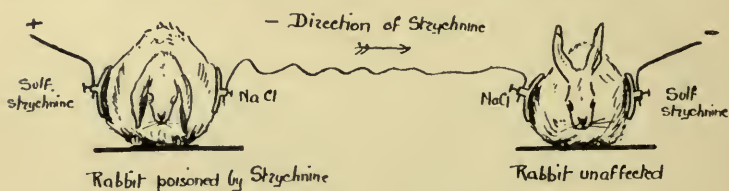 +
- Direction of Strychnine
-
Sulf.
strychnine
NaCl
NaCl
Sulf
Strychnine
Rabbit poisoned by Strychnine
Rabbit unaffected